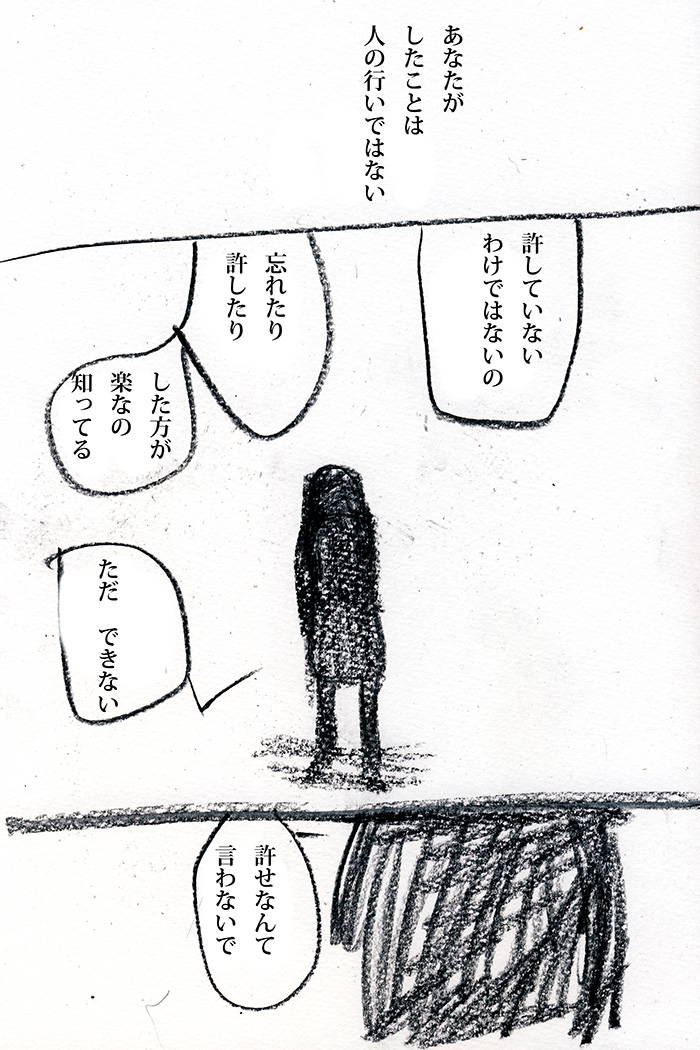 あなたが
したことは
人の行いではない
許していない
わけではないの
忘れたり
許したり
した方が
楽なの
知ってる
ただ　できない
許せなんて
言わないで